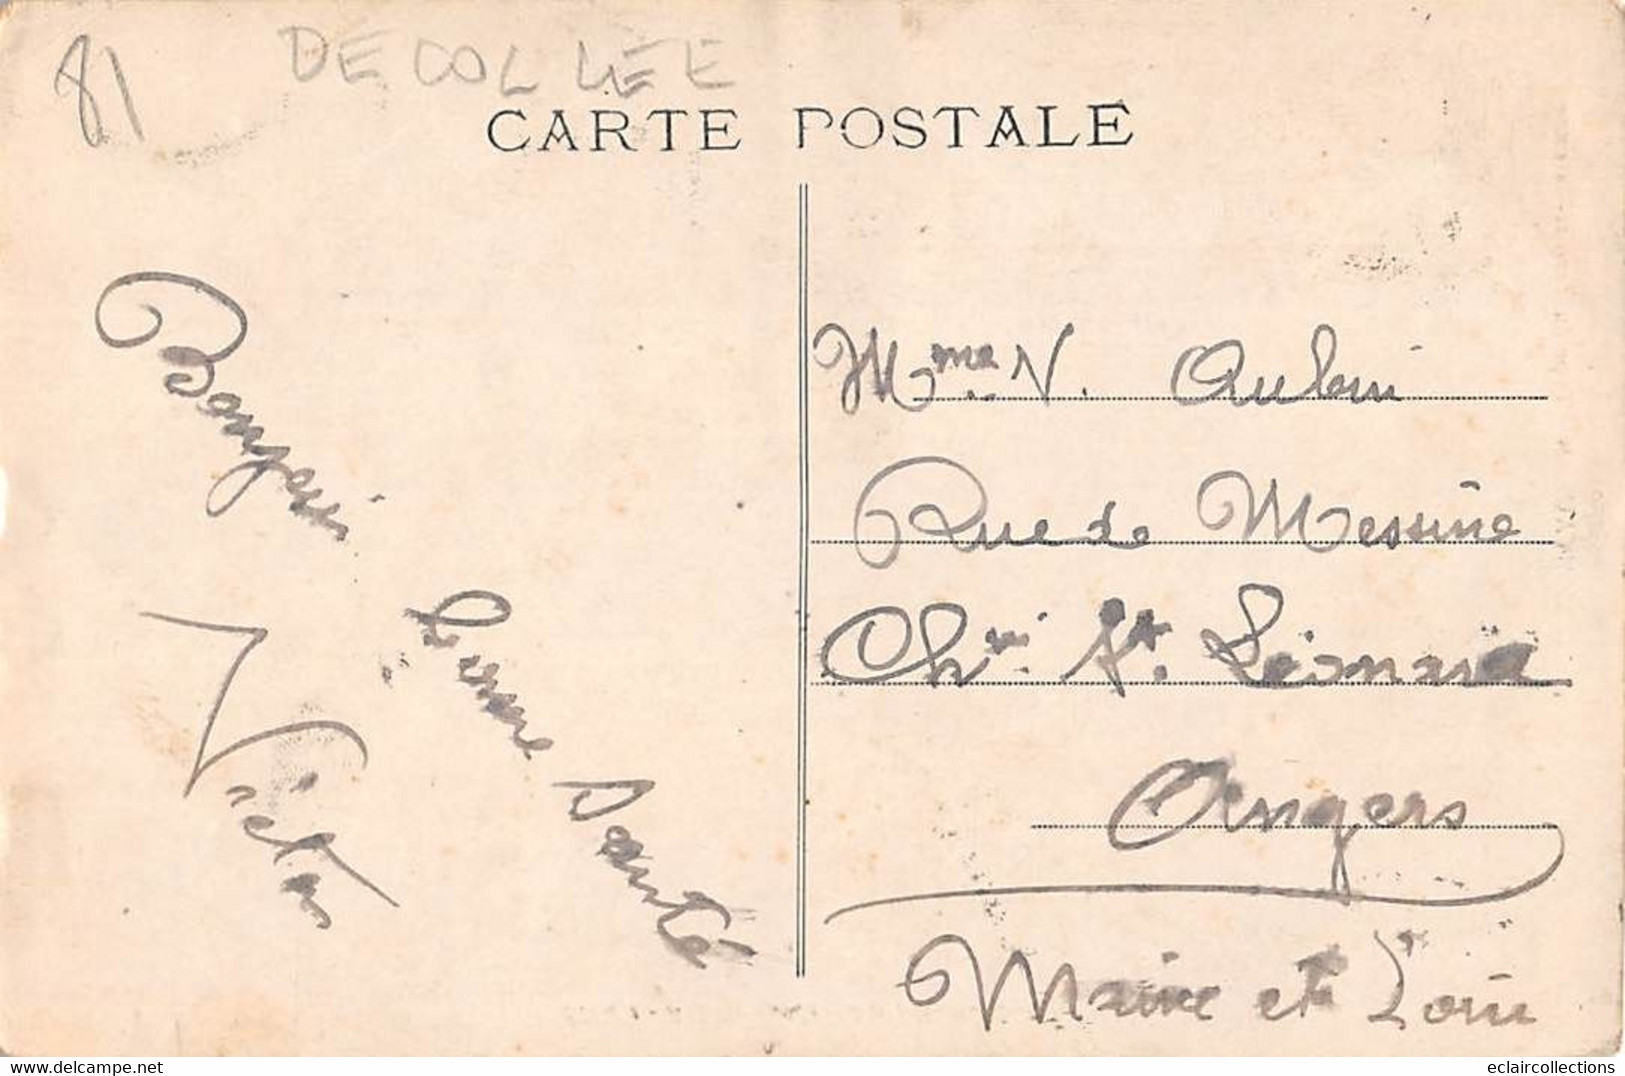 81
DECOLLÉE
CARTE POSTALE
Bonjour
bonne Santé
Victor
Mme V. Aubin
Rue de Messine
Chin St. Léonard
Angers
Maine et Loire
eclaircollections